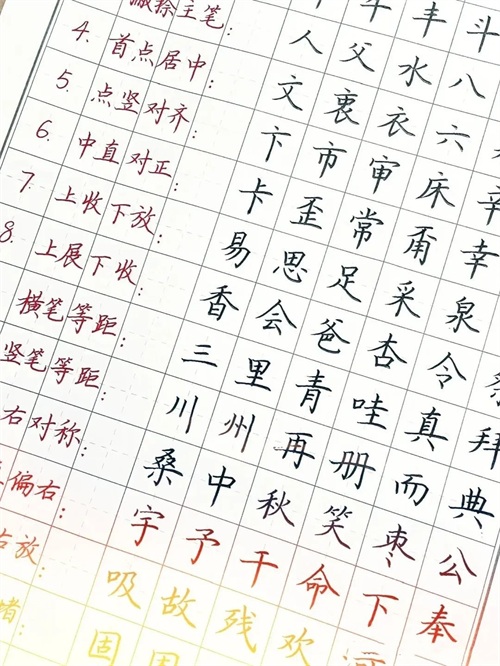 丰 斗
主笔: 人 父 水 八
4. 首点居中: 文 衷 衣 六
5. 点竖对齐: 卞 市 审 床 辛
6. 中直对正: 卡 歪 常 甬 幸
7. 上收下放: 易 思 足 采 泉
8. 上展下收: 香 会 爸 杏 令
横笔等距: 三 里 青 哇 真 拜
竖笔等距: 川 州 再 册 而 典
右对称: 桑 中 秋 笑 枣 公
偏右: 宇 予 干 命 下 奉
放: 吸 故 残 欢
固